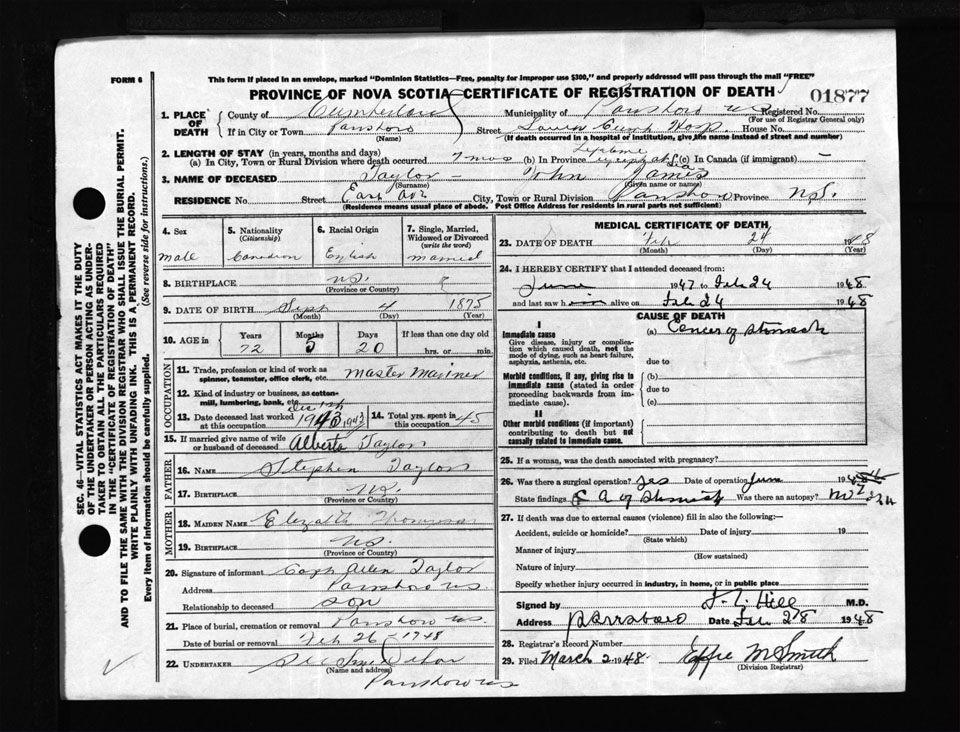 FORM 6
This form if placed in an envelope, marked "Dominion Statistics—Free, penalty for improper use $300," and properly addressed will pass through the mail "FREE"
PROVINCE OF NOVA SCOTIA—CERTIFICATE OF REGISTRATION OF DEATH
01877
1. PLACE OF DEATH
County of Cumberland Municipality of Parrsboro NS Registered No.
(For use of Registrar General only)
If in City or Town Parrsboro Street Hosp. House No.
(Name) (If death occurred in a hospital or institution, give the name instead of street and number)
2. LENGTH OF STAY (in years, months and days) Lifetime
(a) In City, Town or Rural Division where death occurred 7 mos (b) In Province (c) In Canada (if immigrant) —
3. NAME OF DECEASED Taylor — John James
(Surname) (Given name or names)
RESIDENCE No. Street East City, Town or Rural Division Parrsboro Province N.S.
(Residence means usual place of abode. Post Office Address for residents in rural parts not sufficient)
4. Sex
male
5. Nationality (Citizenship)
Canadian
6. Racial Origin
English
7. Single, Married, Widowed or Divorced (write the word)
married
8. BIRTHPLACE NS.
(Province or Country)
9. DATE OF BIRTH Sept 4 1875
(Month) (Day) (Year)
10. AGE in Years Months Days If less than one day old
72 5 20 hrs. or min.
OCCUPATION
11. Trade, profession or kind of work as spinner, teamster, office clerk, etc. Master Mariner
12. Kind of industry or business, as cotton-mill, lumbering, bank, etc.
13. Date deceased last worked at this occupation Dec 1943 1943
14. Total yrs. spent in this occupation 45
15. If married give name of wife or husband of deceased Alberta Taylor
FATHER
16. NAME Stephen Taylor
17. BIRTHPLACE NS.
(Province or Country)
MOTHER
18. MAIDEN NAME Elizabeth Thompson
19. BIRTHPLACE NS.
(Province or Country)
20. Signature of informant Capt Allen Taylor
Address Parrsboro NS.
Relationship to deceased son
21. Place of burial, cremation or removal Parrsboro NS.
Date of burial or removal Feb 26 - 1948
22. UNDERTAKER
(Name and address)
Parrsboro NS
MEDICAL CERTIFICATE OF DEATH
23. DATE OF DEATH Feb 24 1948
(Month) (Day) (Year)
24. I HEREBY CERTIFY that I attended deceased from:
June 1947 to Feb 24 1948
and last saw him alive on Feb 24 1948
CAUSE OF DEATH
I
Immediate cause
Give disease, injury or complication which caused death, not the mode of dying, such as heart failure, asphyxia, asthenia, etc.
(a) Cancer of stomach
due to
Morbid conditions, if any, giving rise to immediate cause (stated in order proceeding backwards from immediate cause).
(b)
due to
(c)
II
Other morbid conditions (if important) contributing to death but not causally related to immediate cause.
25. If a woman, was the death associated with pregnancy?
26. Was there surgical operation? yes Date of operation June 19
State findings C A of stomach Was there an autopsy? no
27. If death was due to external causes (violence) fill in also the following:—
Accident, suicide or homicide? Date of injury 19
(State which)
Manner of injury
(How sustained)
Nature of injury
Specify whether injury occurred in industry, in home, or in public place
Signed by Hill M.D.
Address Parrsboro Date Feb 28 1948
28. Registrar's Record Number
29. Filed March 2 1948. Effie M Smith
(Division Registrar)
SEC. 46—VITAL STATISTICS ACT MAKES IT THE DUTY
OF THE UNDERTAKER OR PERSON ACTING AS UNDER-
TAKER TO OBTAIN ALL THE PARTICULARS REQUIRED
IN THE "CERTIFICATE OF REGISTRATION OF DEATH"
AND TO FILE THE SAME WITH THE DIVISION REGISTRAR WHO SHALL ISSUE THE BURIAL PERMIT.
WRITE PLAINLY WITH UNFADING INK. THIS IS A PERMANENT RECORD.
Every item of information should be carefully supplied. (See reverse side for instructions.)